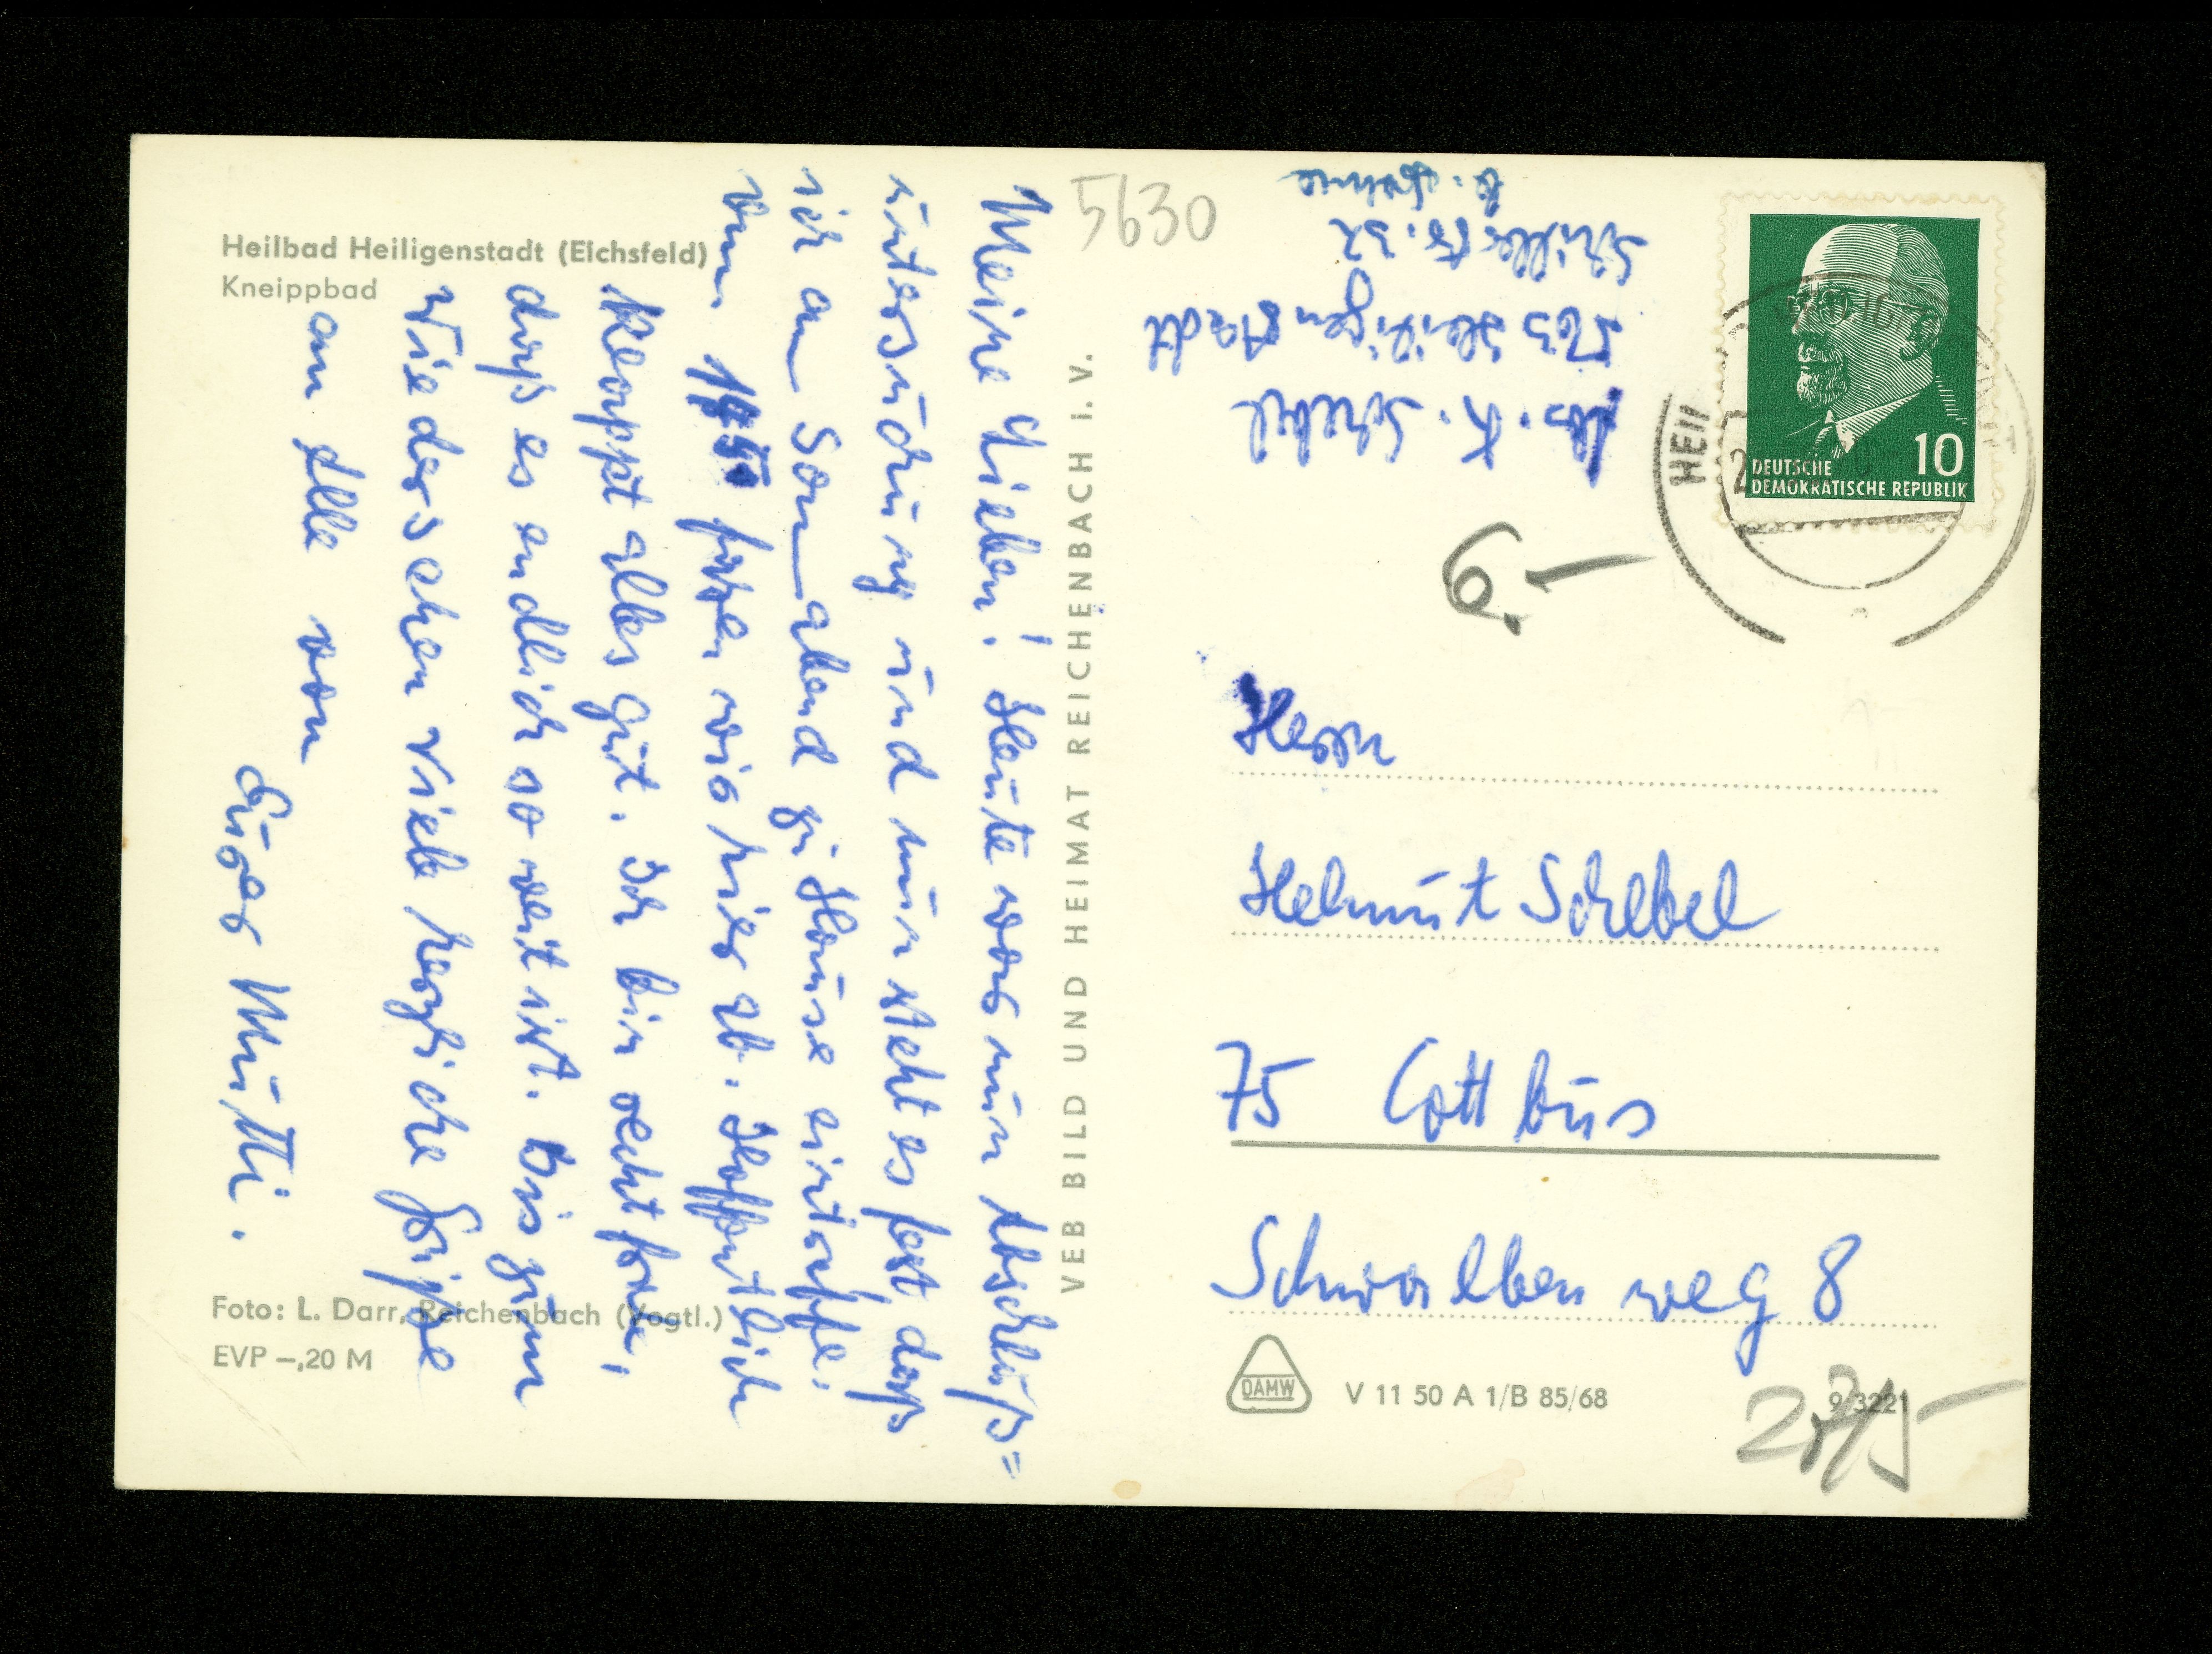 Heilbad Heiligenstadt (Eichsfeld)
Kneippbad
Meine Lieben! Heute war nun Abschluß=
untersuchung und nun steht es fest, daß
ich am Sonnabend zu Hause eintreffe.
Um fahren wir hier ab. Hoffentlich
klappt alles gut. Ich bin recht froh,
daß es endlich so weit ist. Bis zum
Wiedersehen viele herzliche Grüße
an Alle von
Eurer Mutti.
Foto: L. Darr, Reichenbach (Vogtl.)
EVP –,20 M
VEB BILD UND HEIMAT REICHENBACH I. V.
5630
Abs. K. Schebel
563 Heiligenstadt
Schillerstr. 32
b.
DEUTSCHE
DEMOKRATISCHE REPUBLIK
10
HEIL
Herrn
Helmut Schebel
75 Cottbus
Schwalbenweg 8
DAMW
V 11 50 A 1/B 85/68
9/3221